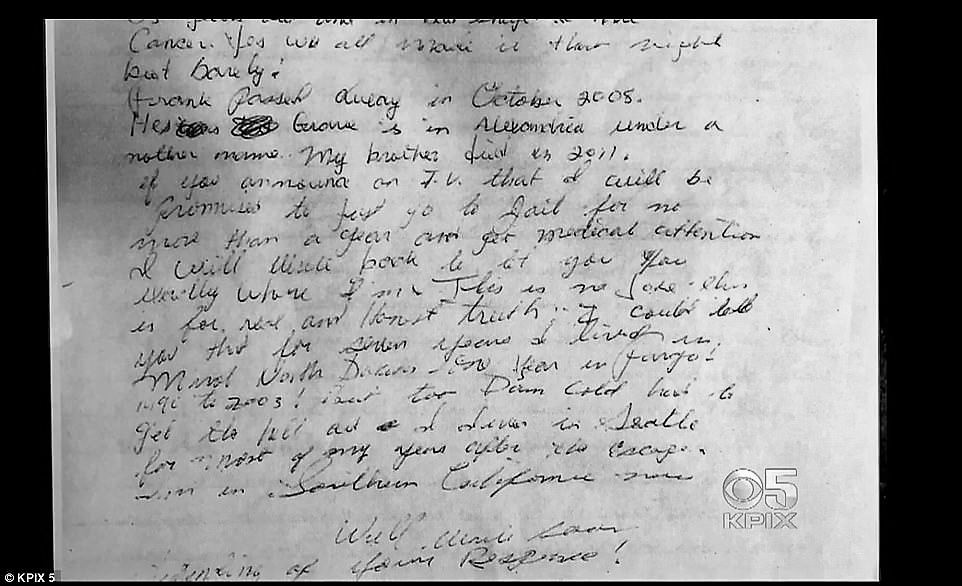 years old and in bad shape I have
Cancer. Yes we all made it that night
but barely!
Frank Passed away in October 2008.
Hes Grave is in Alexandria under a
nother name. My brother died in 2011.
if you announce on T.V. that I will be
Promised to first go to Jail for no
more than a year and get medical attention
I will write back to let you You
exactly where I m This is no Joke this
is for real and Honest truth. I could tell
you that for seven years I lived in
Minot North Dakota one Year in fargo!
to 2003! But too Dam Cold had to
get the hell out I lived in Seattle
for most of my years after the Escape.
in Southern California now
Will write soon
of your Response!
5
KPIX
© KPIX 5